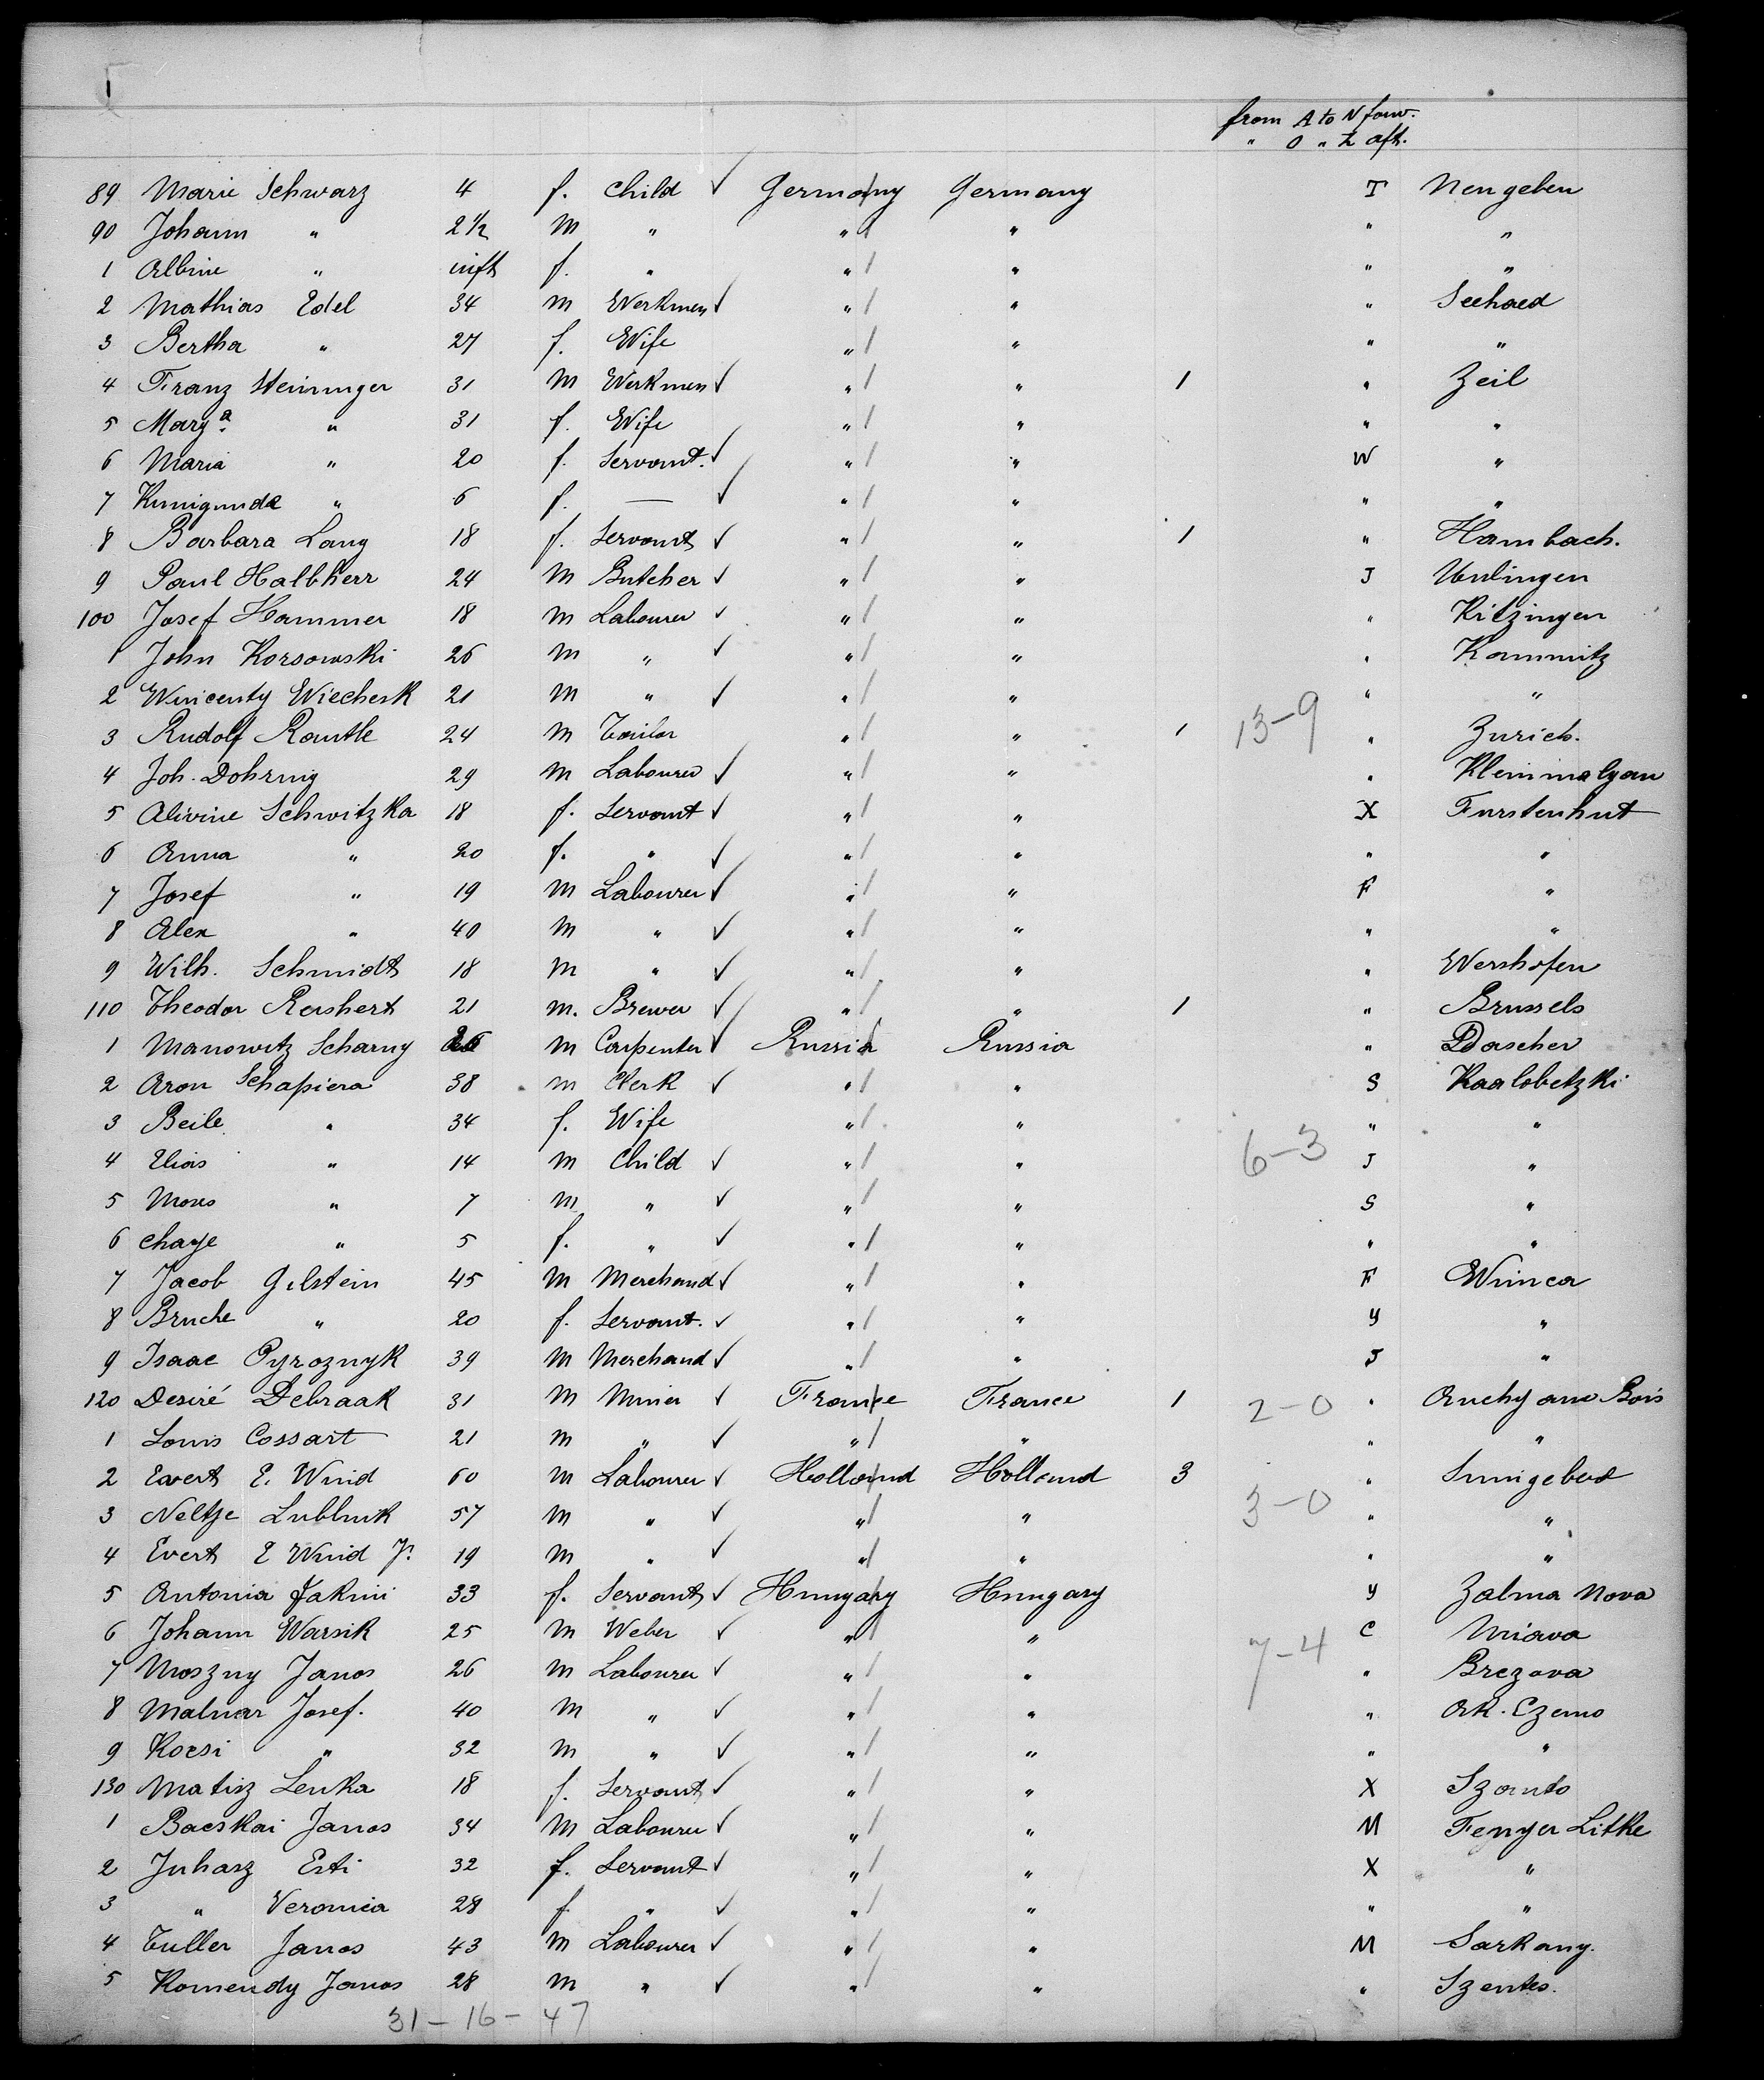 from A to N forw.
" O " Z aft.
89 Marie Schwarz 4 f. Child ✓ Germany Germany T Neugeben
90 Johann " 2 1/2 M " " " " "
1 Albine " inft f. " " " " "
2 Mathias Edel 34 M Werkmen ✓ " " " Seehaed
3 Bertha " 27 f. Wife " " " "
4 Franz Steininger 31 M Werkmen ✓ " " 1 " Zeil
5 Marg.a " 31 f. Wife " " " "
6 Maria " 20 f. Servant. ✓ " " W "
7 Kunigunde " 6 f. — ✓ " " " "
8 Barbara Lang 18 f. Servant ✓ " " 1 " Hambach.
9 Paul Halbherr 24 M Butcher ✓ " " J Unlingen
100 Josef Hammer 18 M Labourer ✓ " " " Kitzingen
1 John Korsowski 26 M " ✓ " " " Kammitz
2 Wincenty Wiecherk 21 M " ✓ " " " "
3 Rudolf Rantle 24 M Tailor " " 1 13-9 " Zurich.
4 Joh. Dohring 29 M Labourer ✓ " " " Kleinmalgan
5 Alivine Schwitzka 18 f. Servant ✓ " " X Furstenhut
6 Anna " 20 f. " ✓ " " " "
7 Josef " 19 M Labourer ✓ " " F "
8 Alex " 40 M " ✓ " " " "
9 Wilh. Schmidt 18 M " ✓ " " " Wershofen
110 Theodor Reishert 21 m. Brewer ✓ " " 1 " Brussels
1 Manowitz Scharny 26 M Carpenter ✓ Russia Russia " Dascher
2 Aron Schapiera 38 m Clerk ✓ " " S Kaalobetzki
3 Beile " 34 f. Wife " " " "
4 Elias " 14 M Child ✓ " " 6-3 J "
5 Moses " 7 M " ✓ " " S "
6 Chaye " 5 f. " ✓ " " " "
7 Jacob Gilstein 45 M Merchand ✓ " " F Winnca
8 Bruche " 20 f. Servant. ✓ " " Y "
9 Isaac Pyroznyk 39 M Merchand ✓ " " J "
120 Desiré Debraak 31 M Miner ✓ France France 1 2-0 " Auchy aux Bois
1 Louis Cossart 21 M " ✓ " " " "
2 Evert E. Wind 60 M Labourer ✓ Holland Holland 3 "
3 Neltje Lubbink 57 M " ✓ " " 3-0 " "
4 Evert E Wind Jr. 19 M " ✓ " " " "
5 Antonia Jakini 33 f. Servant ✓ Hungary Hungary Y Zalma Nova
6 Johann Warsik 25 M Weber ✓ " " 7-4 C Miava
7 Moszny Janos 26 M Labourer ✓ " " " Brezova
8 Malnar Josef. 40 M " ✓ " " " Ork. Czemo
9 Kocsi " 32 M " ✓ " " " "
130 Matisz Lenka 18 f. Servant ✓ " " X Szanto
1 Bacskai Janos 34 M Labourer ✓ " " M Fenyer Litke
2 Juhasz Esti 32 f. Servant ✓ " " X "
3 " Veronica 28 f " ✓ " " " "
4 Tuller Janos 43 M Labourer ✓ " " M Sarkany.
5 Komendy Janos 28 M " ✓ " " " Szentes.
31-16-47